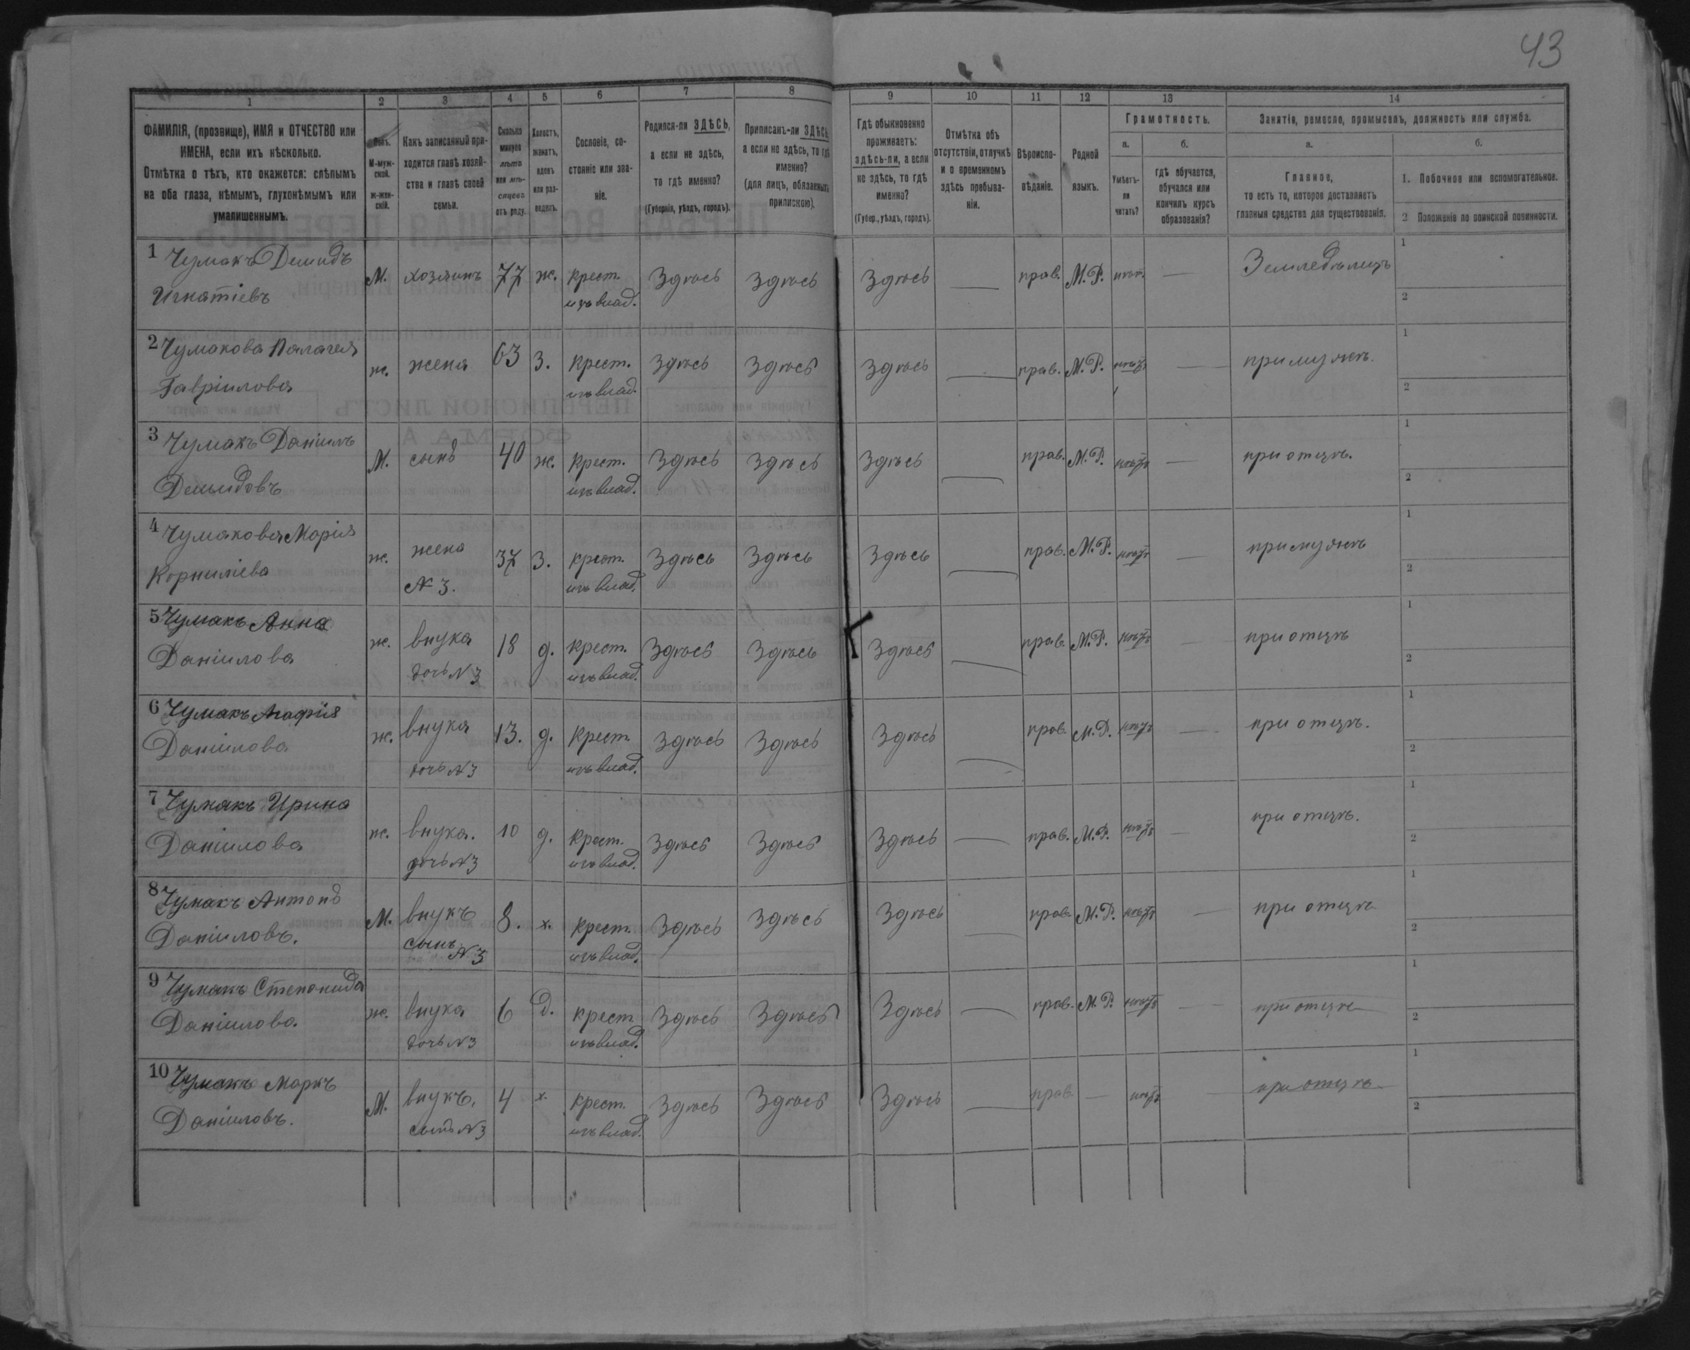 43
1 2 3 4 5 6 7 8 9 10 11 12 13 14
ФАМИЛІЯ, (прозвище), ИМЯ и ОТЧЕСТВО или ИМЕНА, если ихъ нѣсколько.
Отмѣтка о тѣхъ, кто окажется: слѣпымъ на оба глаза, нѣмымъ, глухонѣмымъ или умалишеннымъ.
Полъ.
М-мужской.
ж-женскій.
Какъ записанный приходится главѣ хозяйства и главѣ своей семьи.
Сколько минуло лѣтъ или мѣсяцевъ отъ роду.
Холостъ, женатъ, вдовъ или разведенъ.
Сословіе, состояніе или званіе.
Родился-ли ЗДѢСЬ, а если не здѣсь, то гдѣ именно?
(Губернія, уѣздъ, городъ).
Приписанъ-ли ЗДѢСЬ, а если не здѣсь, то гдѣ именно?
(для лицъ, обязанныхъ припискою).
Гдѣ обыкновенно проживаетъ: здѣсь-ли, а если не здѣсь, то гдѣ именно?
(Губер., уѣздъ, городъ).
Отмѣтка объ отсутствіи, отлучкѣ и о временномъ здѣсь пребываніи.
Вѣроисповѣданіе.
Родной языкъ.
Грамотность.
а. Умѣетъ-ли читать?
б. гдѣ обучается, обучался или кончилъ курсъ образованія?
Занятіе, ремесло, промыселъ, должность или служба.
а. Главное, то есть то, которое доставляетъ главныя средства для существованія.
б.
1. Побочное или вспомогательное.
2 Положеніе по воинской повинности.
1 Чумакъ Демидъ Игнатіевъ М. хозяинъ 77 ж. крест. изъ влад. Здѣсь Здѣсь Здѣсь — прав. М.Р. нѣт. — Земледѣлецъ 1 2
2 Чумакова Палагея Гавріилова ж. жена 63 З. крест. изъ влад. Здѣсь Здѣсь Здѣсь — прав. М.Р. нѣтъ — при мужѣ. 1 2
3 Чумакъ Даніилъ Демидовъ М. сынъ 40 ж. крест. изъ влад. Здѣсь Здѣсь Здѣсь — прав. М.Р. нѣтъ — при отцѣ. 1 2
4 Чумакова Марія Корнилieва ж. жена № 3. 37 З. крест. изъ влад. Здѣсь Здѣсь Здѣсь — прав. М.Р. нѣтъ — при мужѣ 1 2
5 Чумакъ Анна Даніилова ж. внука дочь N3 18 д. крест. изъ влад. Здѣсь Здѣсь Здѣсь — прав. М.Р. нѣтъ — при отцѣ 1 2
6 Чумакъ Агафія Даніилова ж. внука дочь N3 13. д. крест. изъ влад. Здѣсь Здѣсь Здѣсь — прав. М.Р. нѣтъ — при отцѣ. 1 2
7 Чумакъ Ирина Даніилова ж. внука. дочь N3 10 д. крест. изъ влад. Здѣсь Здѣсь Здѣсь — прав. М.Р. нѣтъ — при отцѣ. 1 2
8 Чумакъ Антонъ Даніиловъ. М. внукъ сынъ N3 8. х. крест. изъ влад. Здѣсь Здѣсь Здѣсь — прав. М.Р. нѣтъ — при отцѣ 1 2
9 Чумакъ Степонида Даніилова. ж. внука дочь N3 6 Д. крест. изъ влад. Здѣсь Здѣсь Здѣсь — прав. М.Р. нѣтъ — при отцѣ 1 2
10 Чумакъ Маркъ Даніиловъ. М. внукъ. сынъ N3 4 х. крест. изъ влад. Здѣсь Здѣсь Здѣсь — прав. — нѣтъ — при отцѣ 1 2